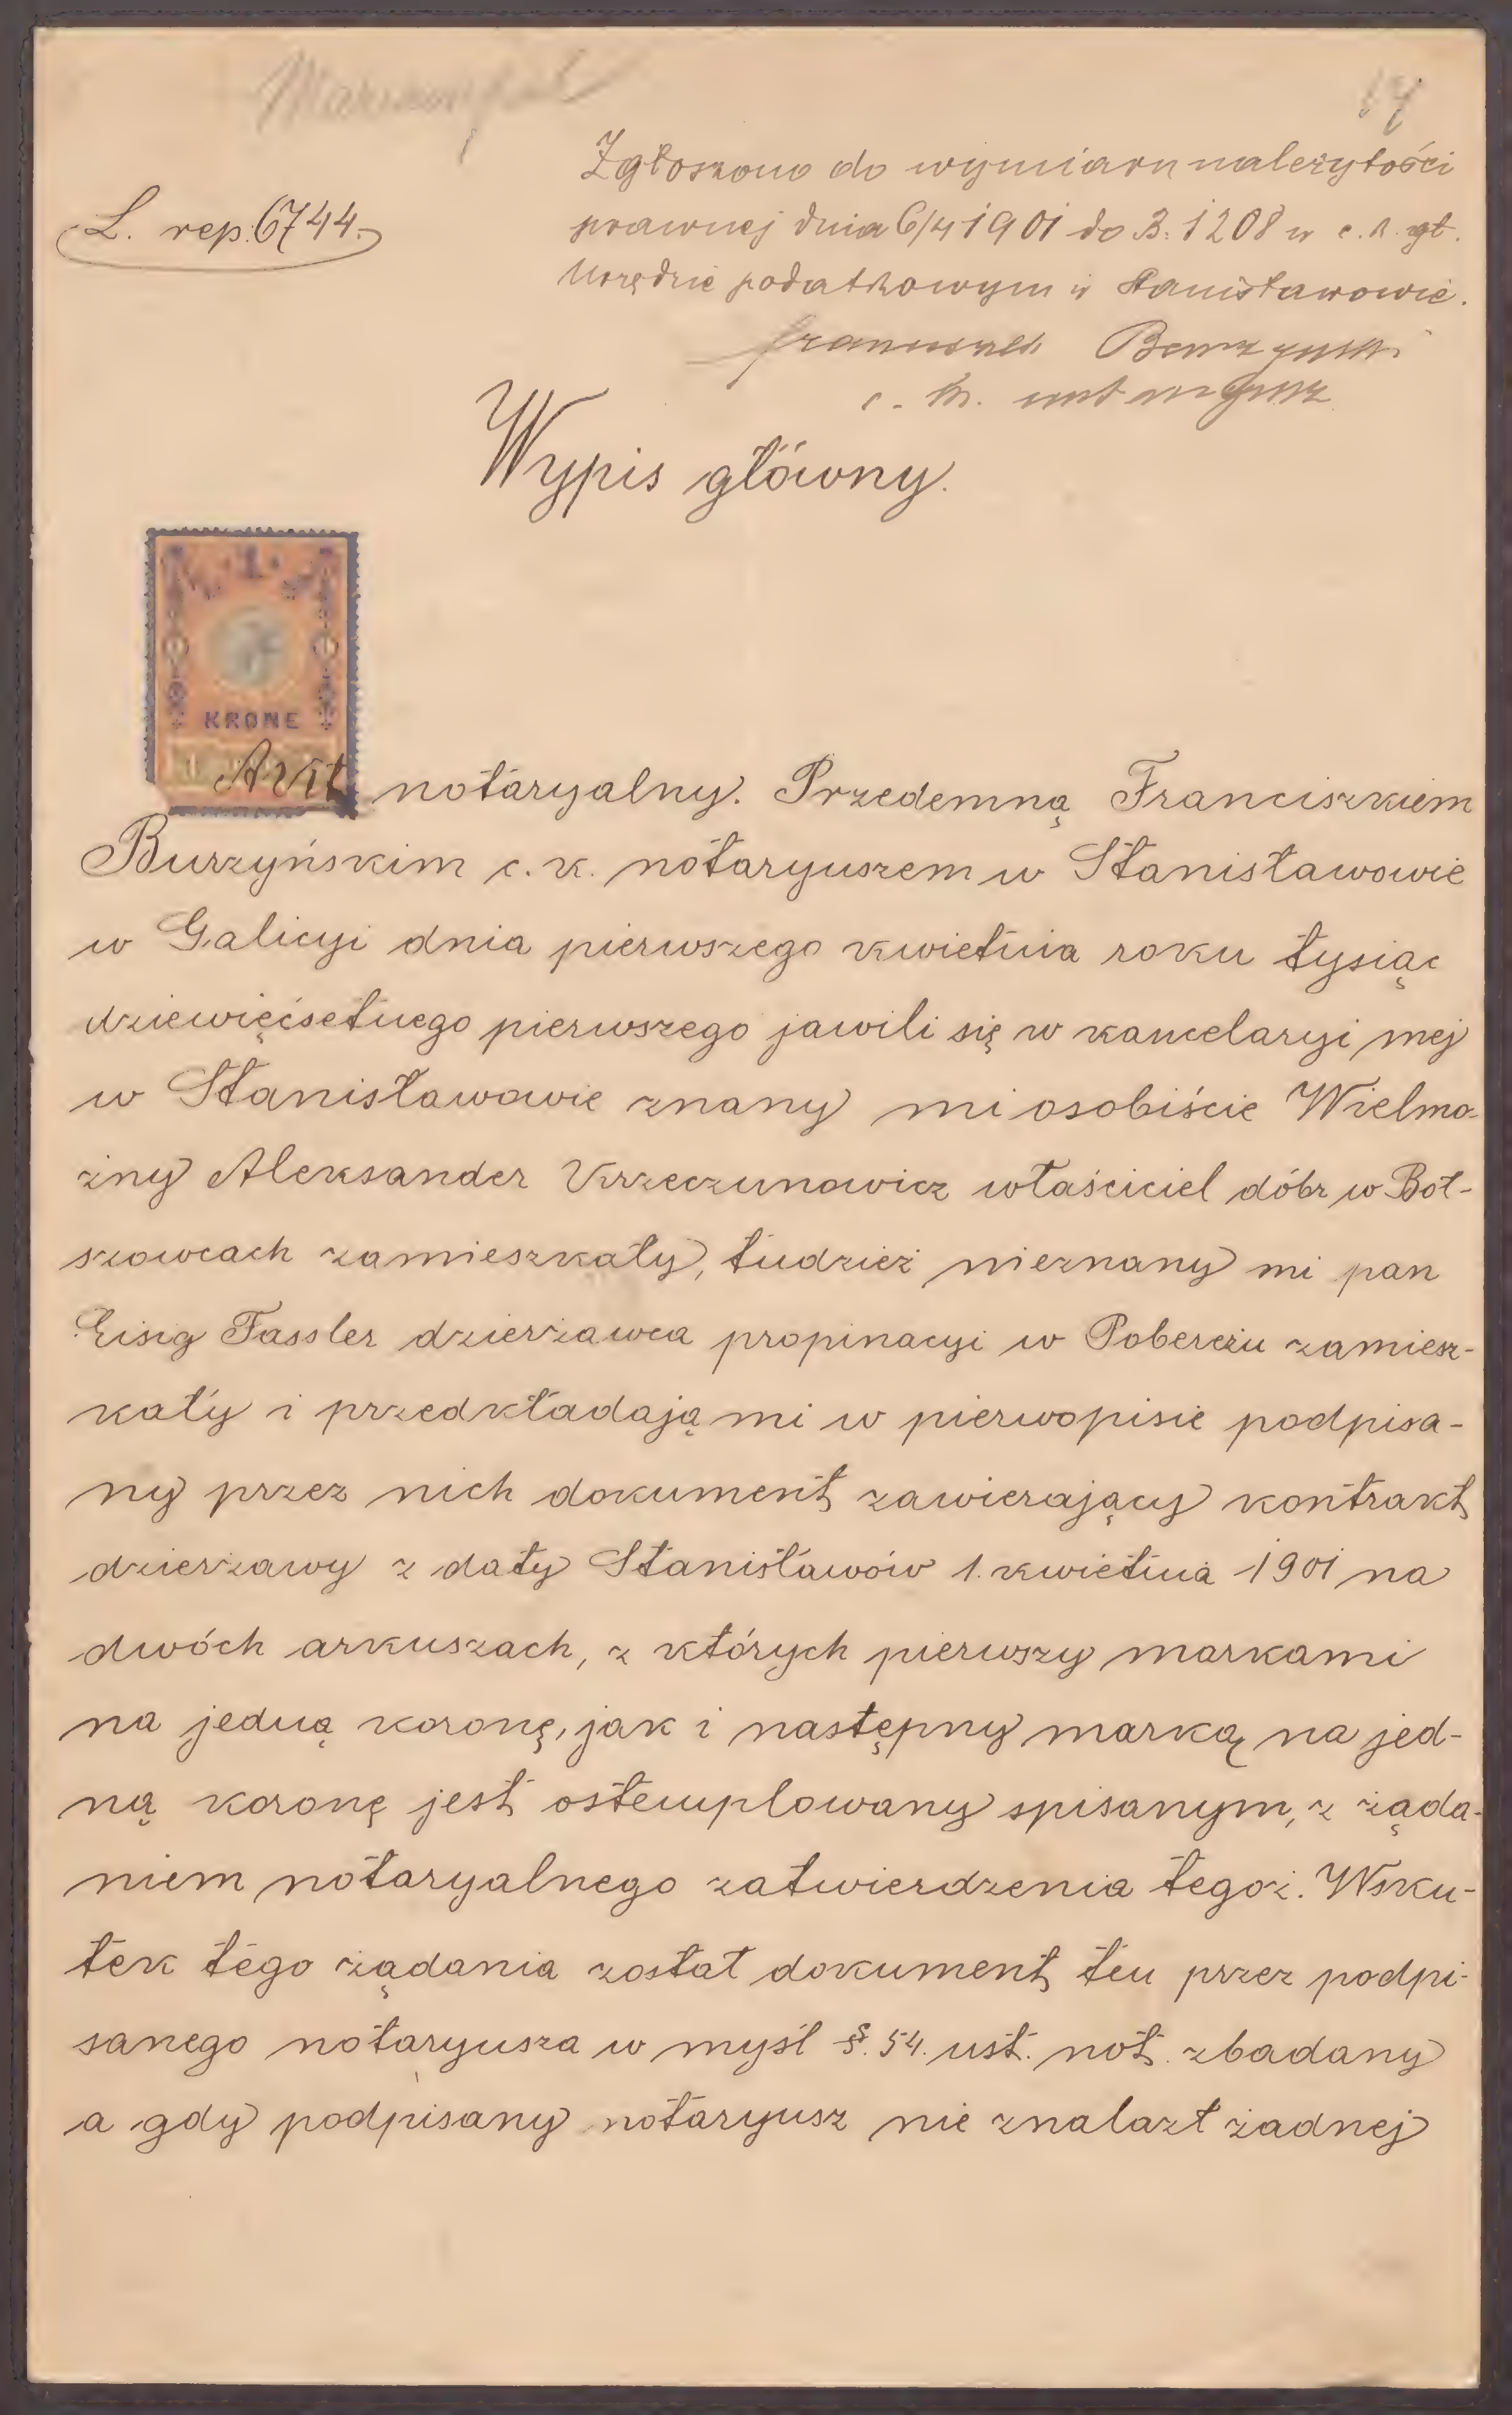 Mariampol
14
Zgłoszono do wymiaru należytości
L. rep. 6744.
prawnej dnia 6/4 1901 do B. 1208 w c. k. gł.
Urzędzie podatkowym w Stanisławowie.
Franciszek Burzyński
c. k. notaryusz
Wypis główny.
1
KRONE
Akt notaryalny. Przedemną Franciszkiem
Burzyńskim c. k. notaryuszem w Stanisławowie
w Galicyi dnia pierwszego kwietnia roku tysiąc
dziewięćsetnego pierwszego jawili się w kancelaryi mej
w Stanisławowie znany mi osobiście Wielmo-
żny Aleksander Krzeczunowicz właściciel dóbr w Boł-
szowcach zamieszkały, tudzież nieznany mi pan
Eisig Fassler dzierżawca propinacyi w Pobereżu zamiesz-
kały i przedkładają mi w pierwopisie podpisa-
ny przez nich dokument zawierający kontrakt
dzierżawy z daty Stanisławów 1. kwietnia 1901 na
dwóch arkuszach, z których pierwszy markami
na jedną koronę, jak i następny marką na jed-
ną koronę jest ostemplowany spisanym, z żąda-
niem notaryalnego zatwierdzenia tegoż. Wsku-
tek tego żądania został dokument ten przez podpi-
sanego notaryusza w myśl §. 54. ust. not. zbadany
a gdy podpisany notaryusz nie znalazł żadnej